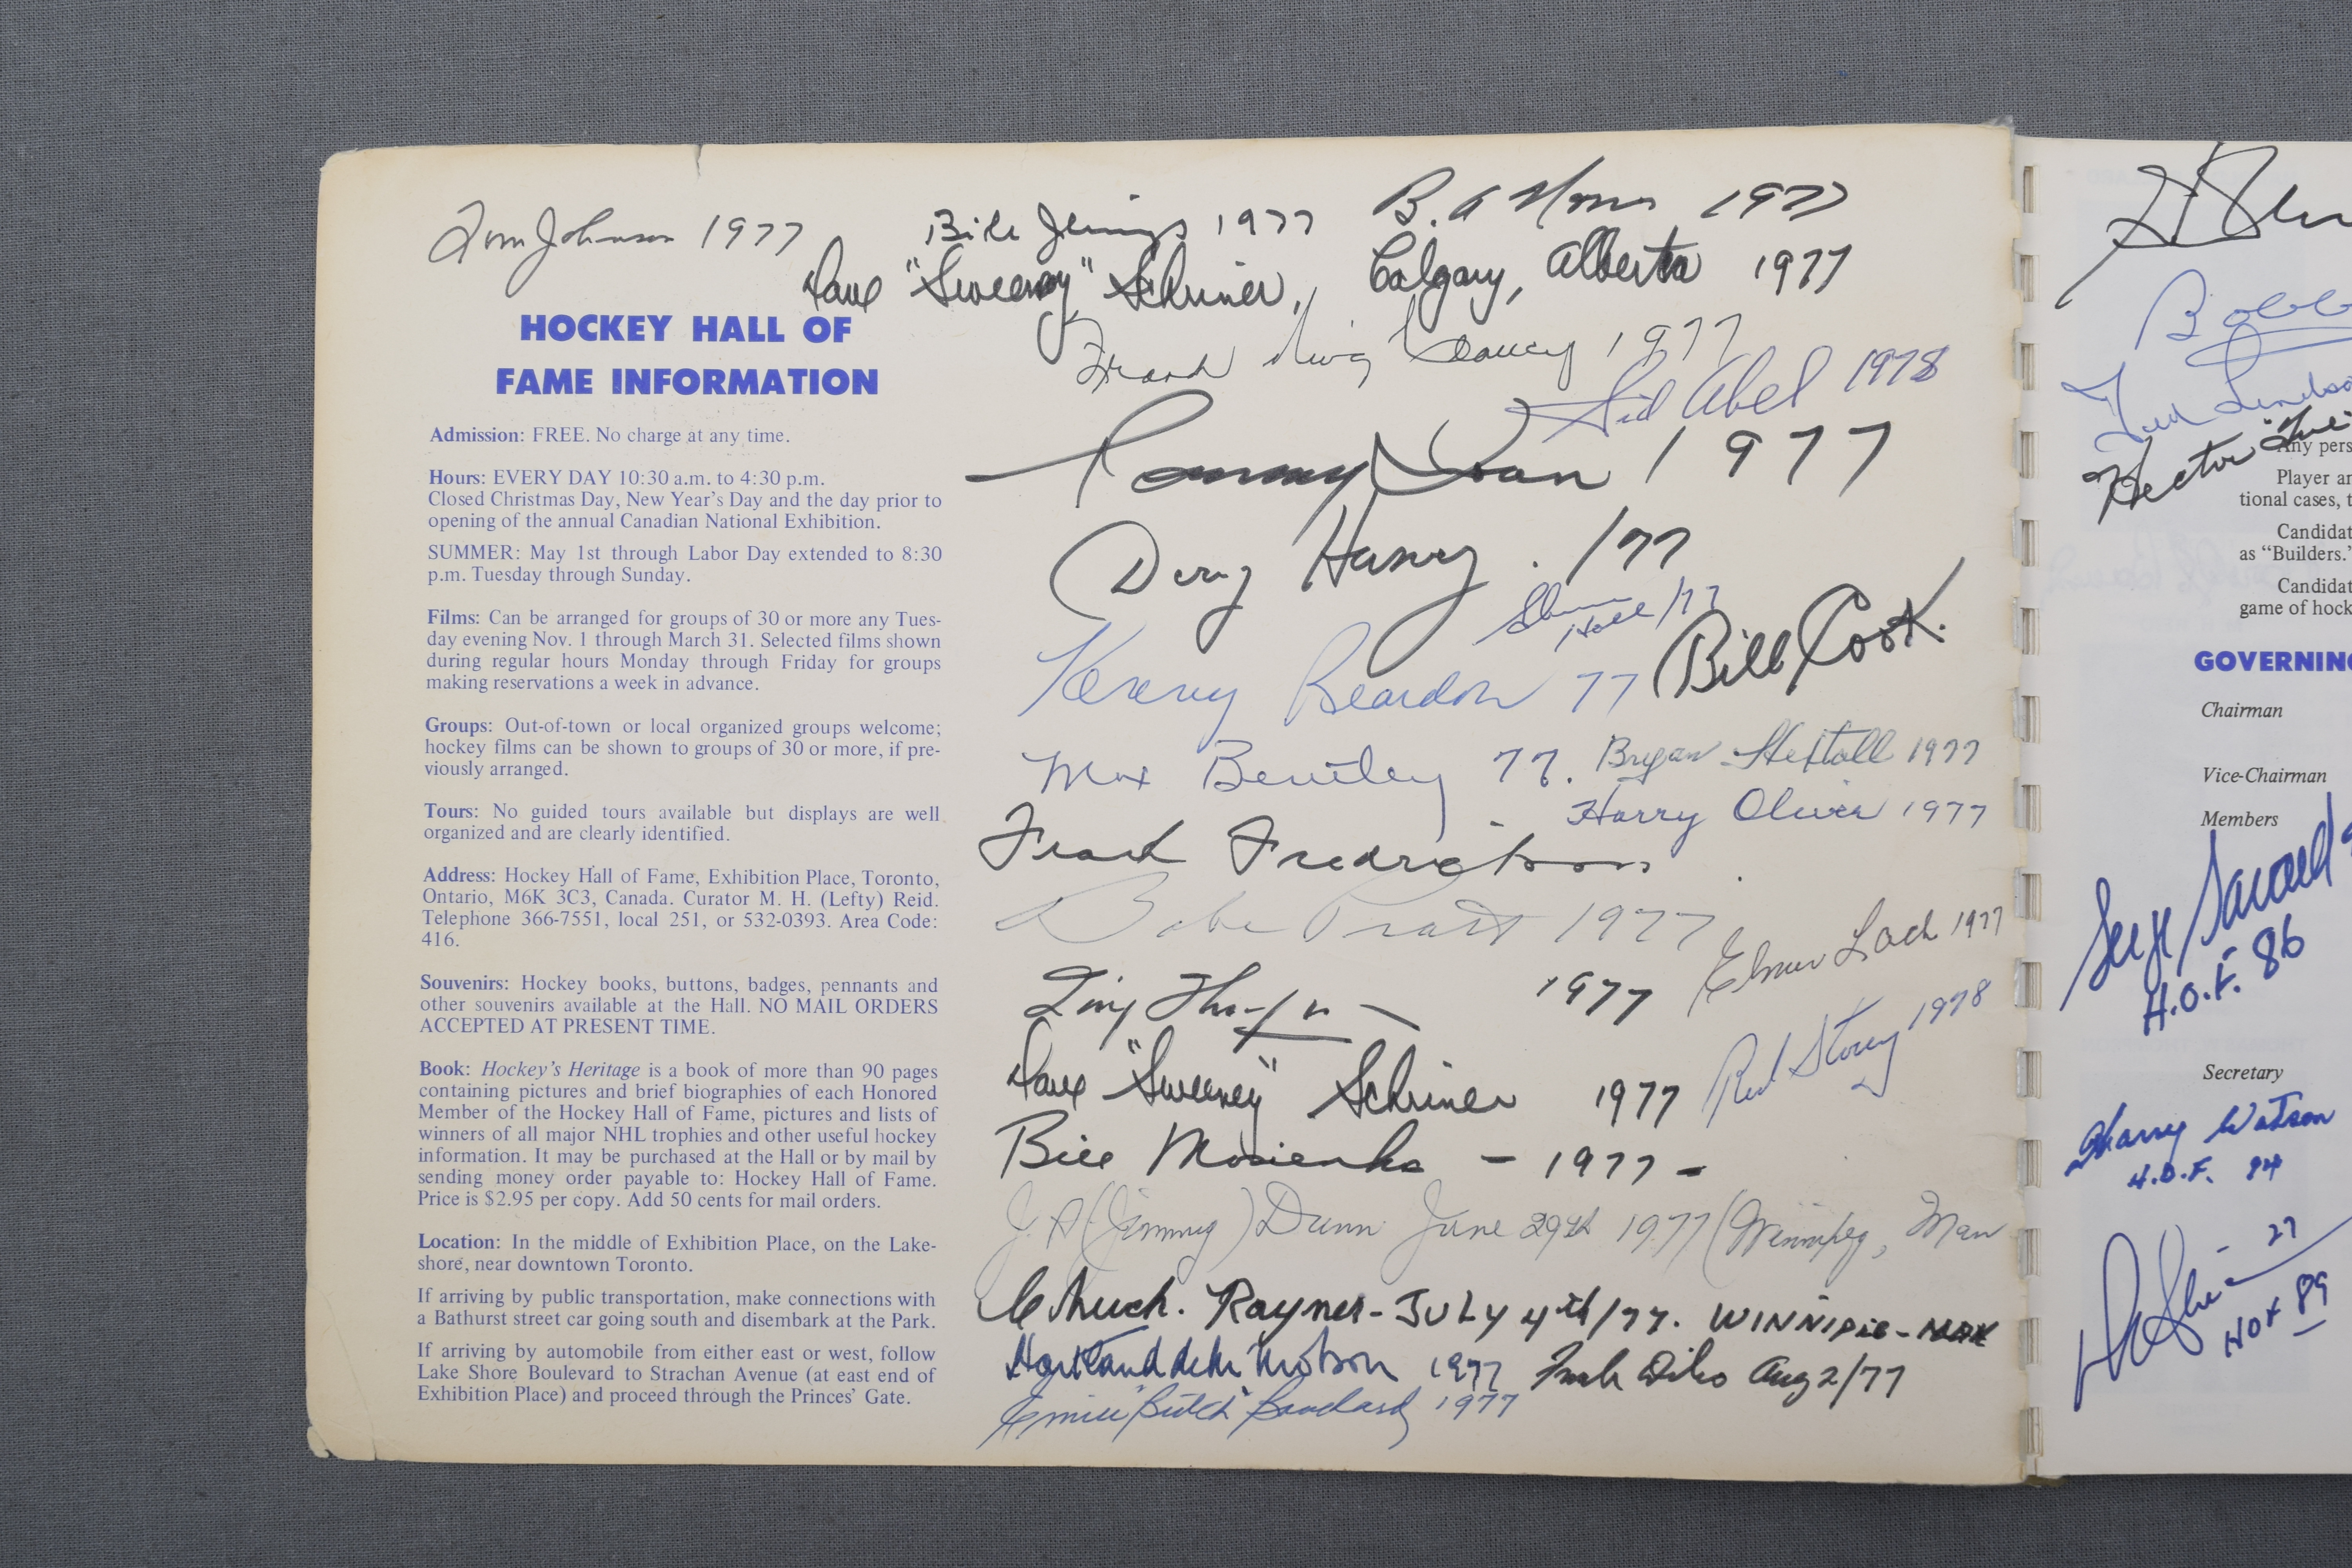 Tom Johnson 1977
Bill Jennings 1977
B. A 1977
Dave "Sweeney" Schriner, Calgary, Alberta 1977
Frank King Clancy 1977
Sid Abel 1978
Tommy Ivan 1977
Doug Harvey. /77
Glenn Hall /77
Bill Cook.
Kenny Reardon 77
Max Bentley 77.
Bryan Hextall 1977
Harry Oliver 1977
Frank Fredrickson
Babe Pratt 1977
Elmer Lach 1977
Tiny Thompson 1977
Red Storey 1978
Dave "Sweeney" Schriner 1977
Bill Mosienko - 1977 -
J. A (Jimmy) Dunn June 29th 1977 (Winnipeg, Man
Chuck. Rayner - JULY 4th/77.
Hartland de M Molson 1977
Aug 2/77
Emile "Butch" Bouchard 1977
HOCKEY HALL OF
FAME INFORMATION
Admission: FREE. No charge at any time.
Hours: EVERY DAY 10:30 a.m. to 4:30 p.m.
Closed Christmas Day, New Year's Day and the day prior to
opening of the annual Canadian National Exhibition.
SUMMER: May 1st through Labor Day extended to 8:30
p.m. Tuesday through Sunday.
Films: Can be arranged for groups of 30 or more any Tues-
day evening Nov. 1 through March 31. Selected films shown
during regular hours Monday through Friday for groups
making reservations a week in advance.
Groups: Out-of-town or local organized groups welcome;
hockey films can be shown to groups of 30 or more, if pre-
viously arranged.
Tours: No guided tours available but displays are well
organized and are clearly identified.
Address: Hockey Hall of Fame, Exhibition Place, Toronto,
Ontario, M6K 3C3, Canada. Curator M. H. (Lefty) Reid.
Telephone 366-7551, local 251, or 532-0393. Area Code:
416.
Souvenirs: Hockey books, buttons, badges, pennants and
other souvenirs available at the Hall. NO MAIL ORDERS
ACCEPTED AT PRESENT TIME.
Book: Hockey's Heritage is a book of more than 90 pages
containing pictures and brief biographies of each Honored
Member of the Hockey Hall of Fame, pictures and lists of
winners of all major NHL trophies and other useful hockey
information. It may be purchased at the Hall or by mail by
sending money order payable to: Hockey Hall of Fame.
Price is $2.95 per copy. Add 50 cents for mail orders.
Location: In the middle of Exhibition Place, on the Lake-
shore, near downtown Toronto.
If arriving by public transportation, make connections with
a Bathurst street car going south and disembark at the Park.
If arriving by automobile from either east or west, follow
Lake Shore Boulevard to Strachan Avenue (at east end of
Exhibition Place) and proceed through the Princes' Gate.
Ted
Hector
Any pers
Player an
tional cases, t
Candidat
as "Builders."
Candidat
game of hock
GOVERNING
Chairman
Vice-Chairman
Members
Serge Savard
H.O.F. 86
Secretary
Harry Watson
H.O.F. 94
27
HOF 89